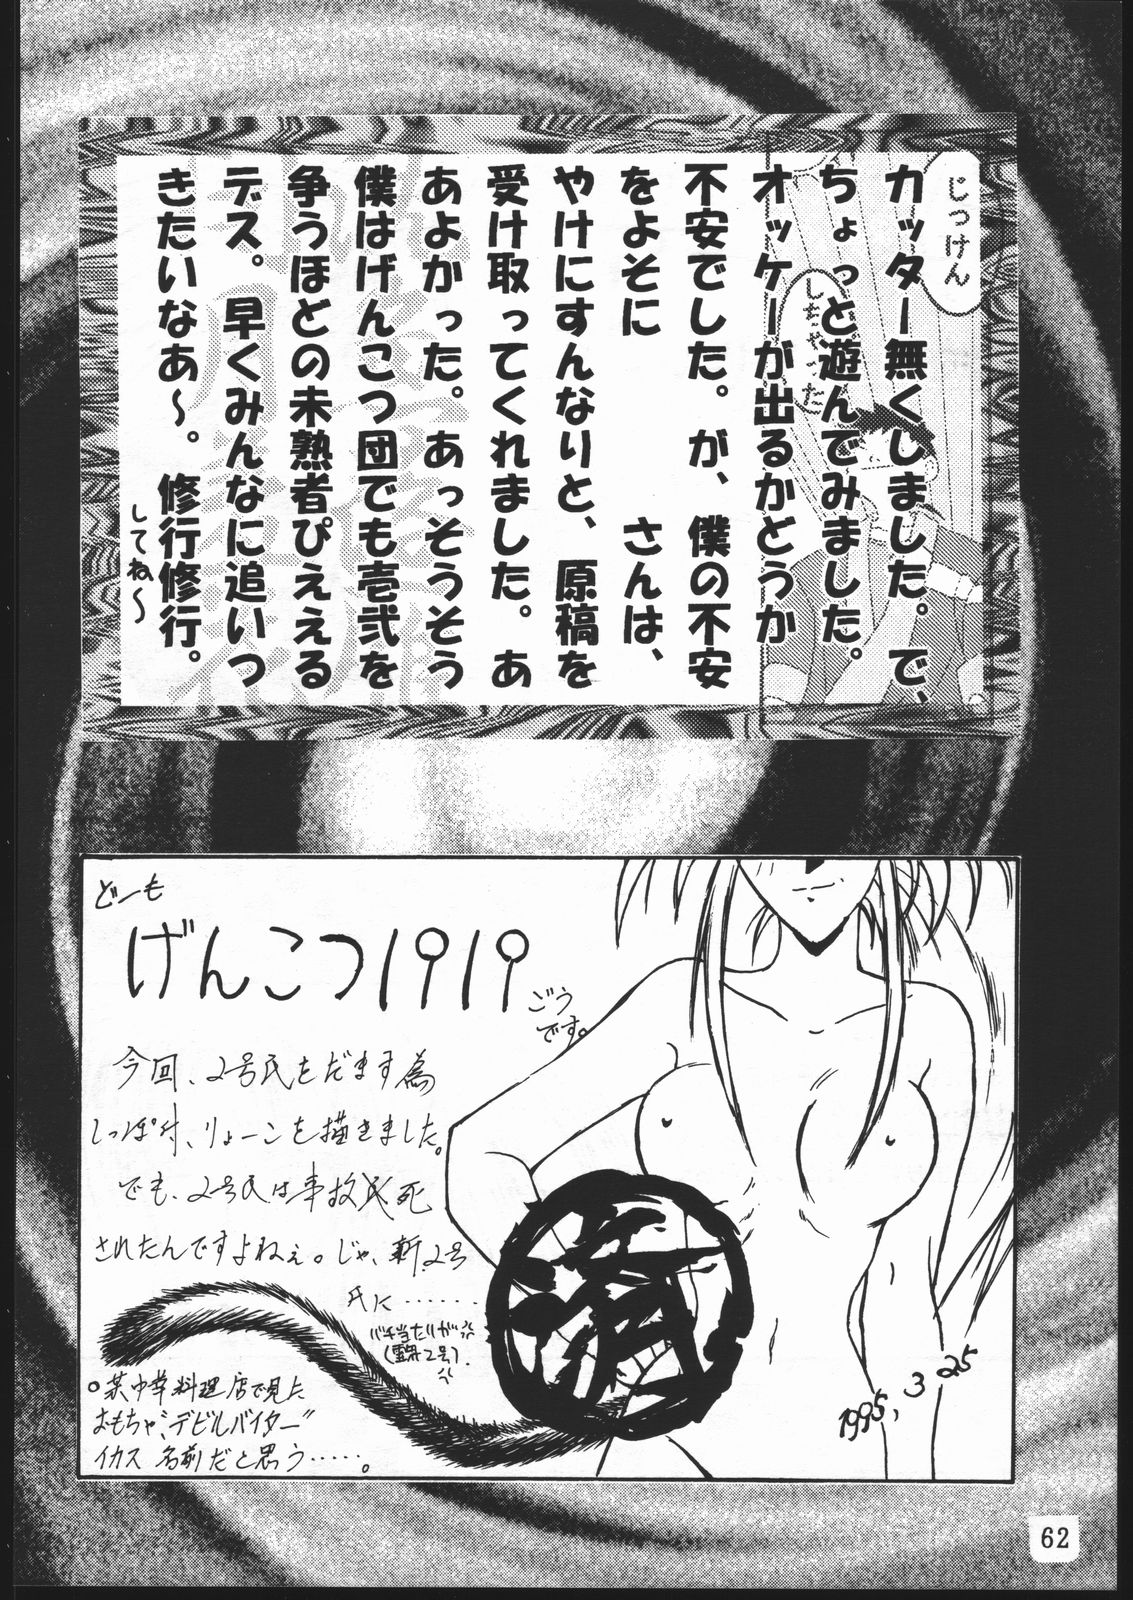 じっけん
しちゃった
カッター無くしました。で、
ちょっと遊んでみました。
オッケーが出るかどうか
不安でした。が、僕の不安
をよそに　　　さんは、
やけにすんなりと、原稿を
受け取ってくれました。あ
あよかった。あっそうそう
僕はげんこつ団でも壱弐を
争うほどの未熟者ぴええる
デス。早くみんなに追いつ
きたいなあ～。修行修行。
してね～
どーも
げんこつ1919
ごう
です。
今回、2号氏をだます為
しっぽ付、りょーこを描きました。
でも、2号氏は事故死
されたんですよねぇ。じゃ、新2号
氏に……
バチ当たりが
○某中華料理店で見た
おもちゃ、"デビルバイター"
イカス名前だと思う……。
済
1995, 3 25
62